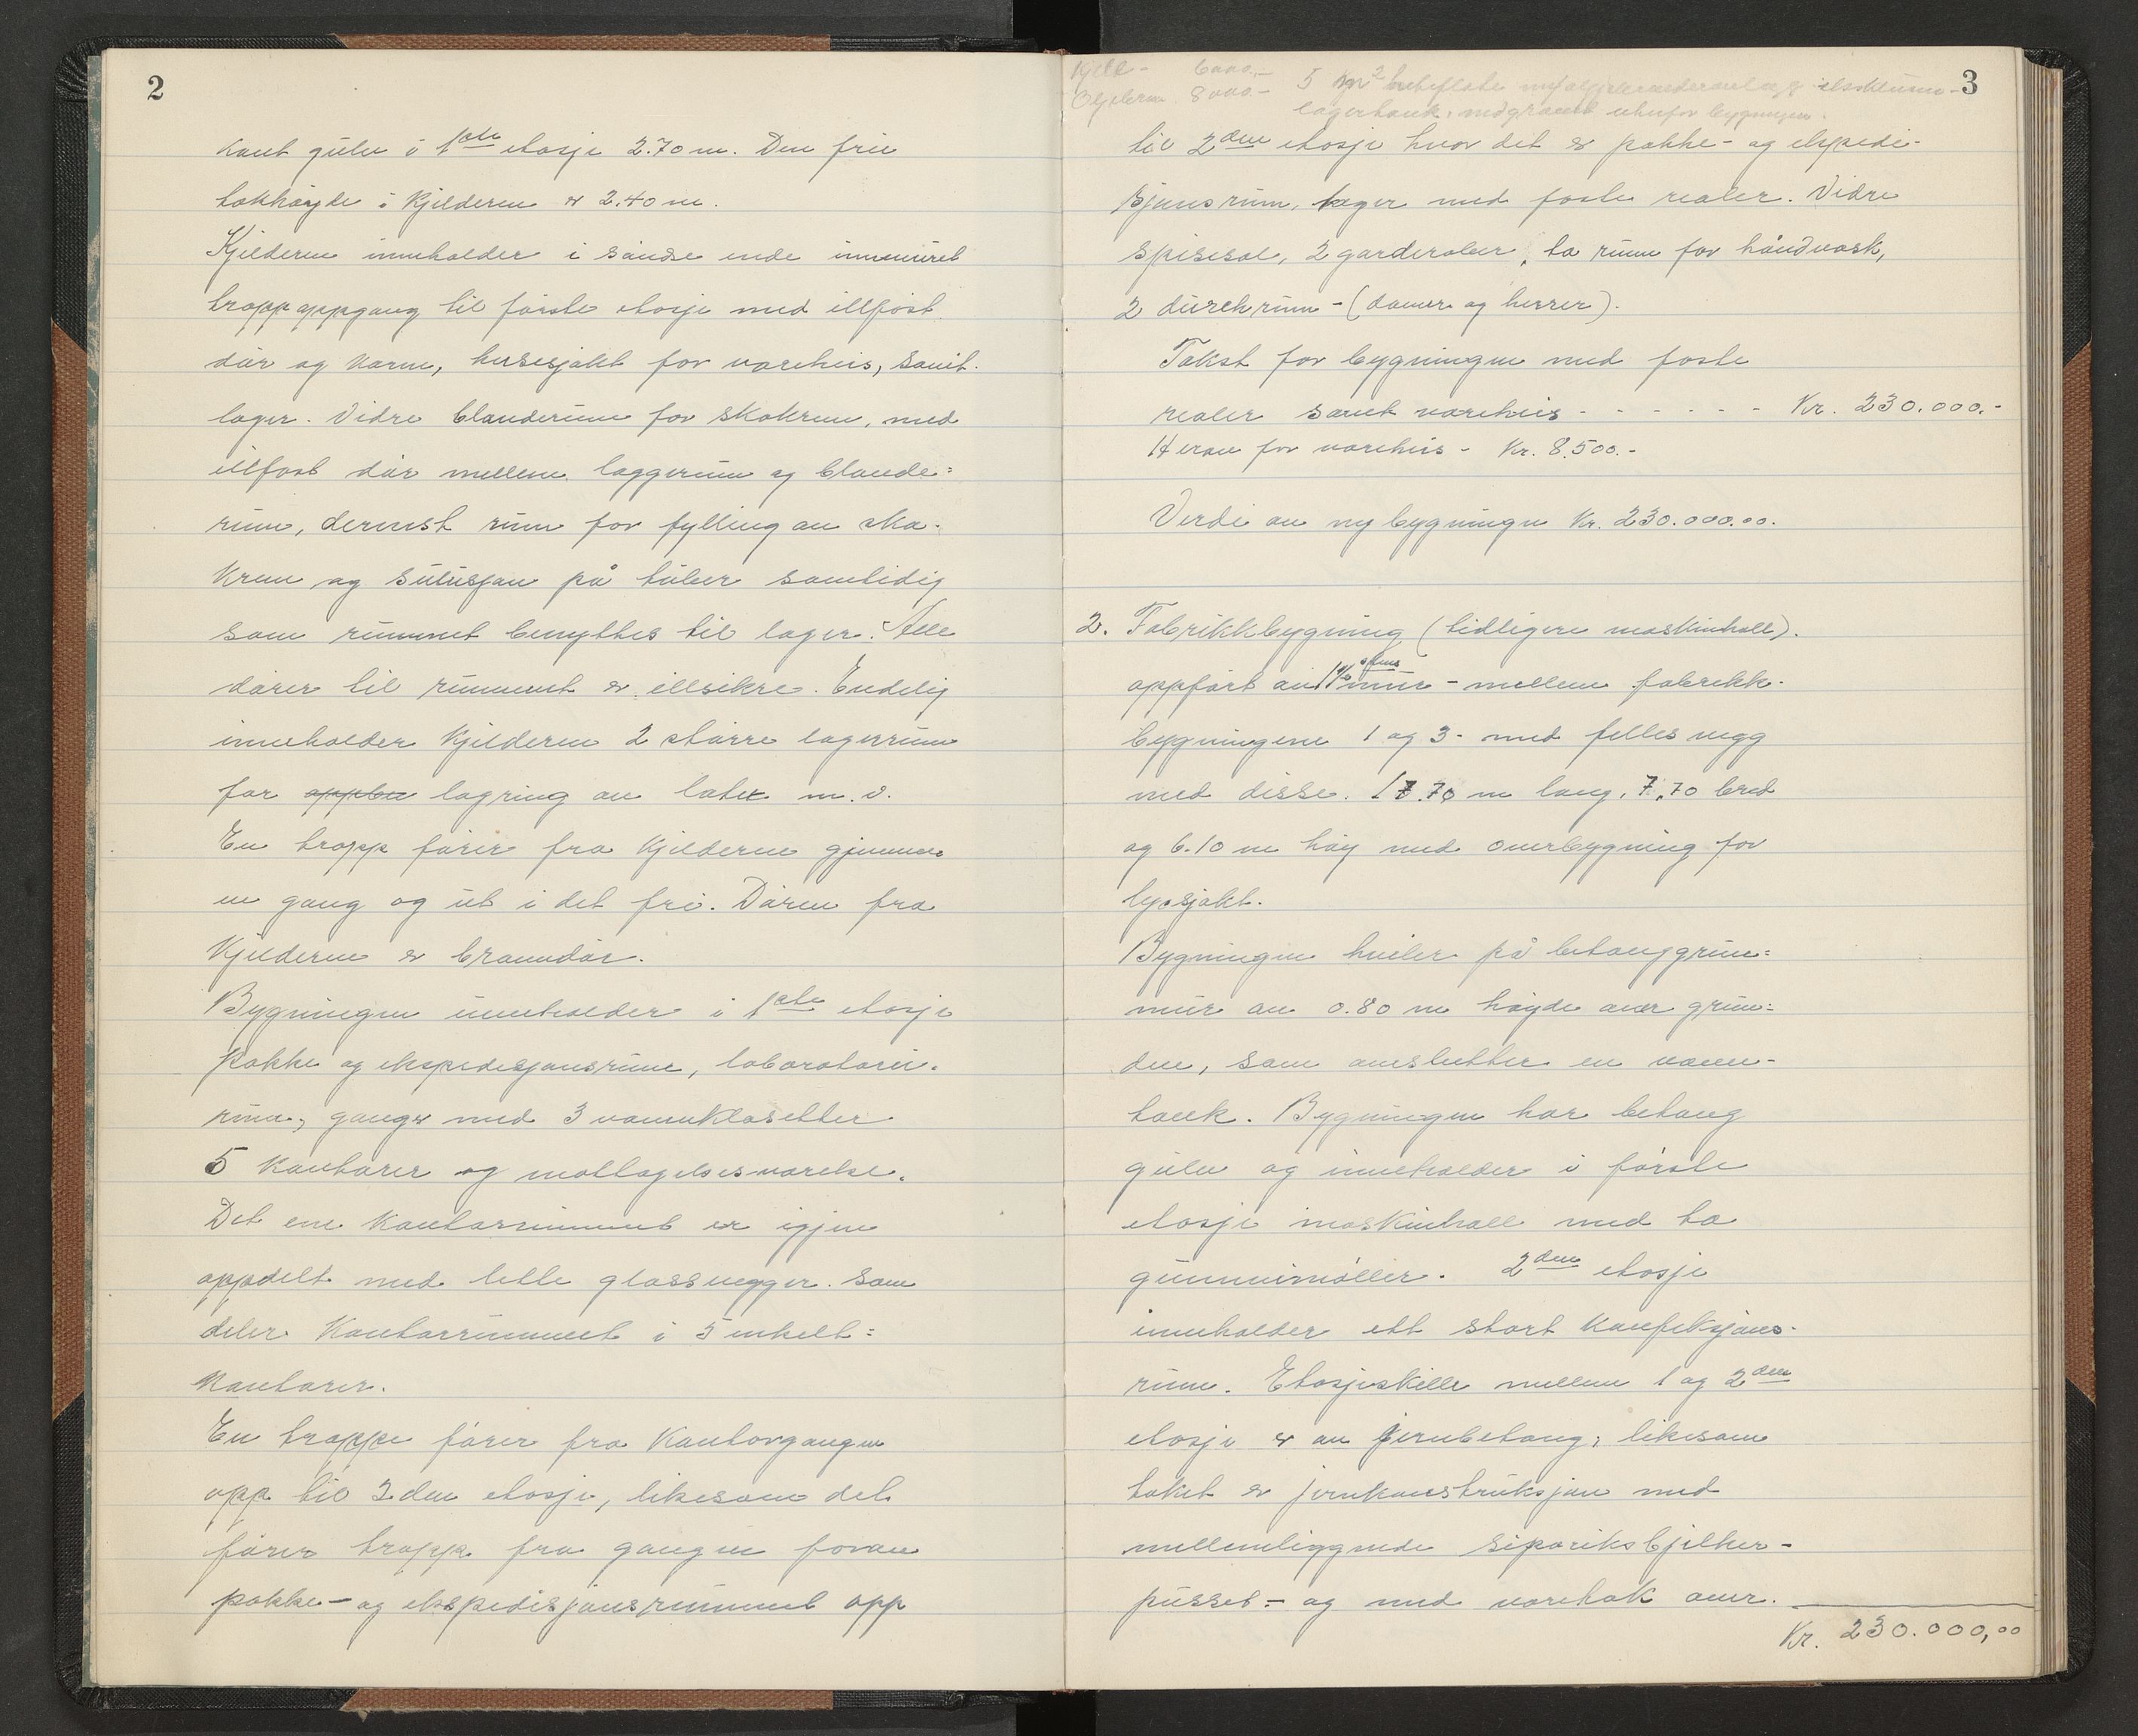 2
kant gulv i 1ste etasje 2.70 m. Den frie
takhøyde i kjelderen er 2.40 m.
Kjelderen inneholder i søndre ende innmuret
trappoppgang til første etasje med illfast
dør og karm, heisesjakt for vareheis, samt
lager. Vidre blanderum for skokrem, med
illfast dør mellem laggerum og blande=
rum, dernest rum for fylling av sko-
krem og sulusjon på tuber samtidig
som rummet benyttes til lager. Alle
dører til rummet er illsikre. Endelig
inneholder kjelderen 2 større lagerrum
for lagring av latex m.v.
En trapp fører fra kjelderen gjennem
en gang og ut i det fri. Døren fra
kjelderen er branndør.
Bygningen inneholder i 1ste etasje
pakke og ekspedisjonsrum, laboratorie-
rum, ganger med 3 vannklosetter
5 kontorer og mottagelsesværelse.
Det ene kontorrummet er igjen
oppdelt med lette glassvegger som
deler kontorrummet i 5 enkelt=
kontorer.
En trappe fører fra kontorgangen
opp til 2den etasje, likesom det
fører trapp fra gangen foran
pakke- og ekspedisjonsrummet opp
3
Kjele - 6000.-
Oljebren 8000.- 5 m2
lagertank, nedgravet utenfor bygningen.
til 2den etasje hvor det er pakke- og ekspedi-
sjonsrum, lager med faste realer. Vidre
spisesal, 2 garderober, to rum for håndvask,
2 durchrum - (damer og herrer).
Takst for bygningen med faste
realer samt vareheis - - - - - - Kr. 230.000.-
Herav for vareheis - Kr. 8.500.-
Verdi av ny bygningen Kr. 230.000.00.
2. Fabrikkbygning (tidligere maskinhall).
oppført av 1½ stens mur - mellem fabrikk-
bygningene 1 og 3 - med felles vegg
med disse. 17.70 m lang, 7.70 bred
og 6.10 m høy med overbygning for
lysjakt.
Bygningen hviler på betonggrun=
mur av 0.80 m høyde over grun=
den, som omslutter en vann-
tank. Bygningen har betong
gulv og inneholder i første
etasje maskinhall med to
gummimøller. 2den etasje
inneholder ett stort konfeksjons-
rum. Etasjeskille mellem 1 og 2den
etasje er av jernbetong, likesom
taket er jernkonstruksjon med
mellemliggende siporiksbjelker -
pusset - og med voretak over.
Kr. 230.000,00